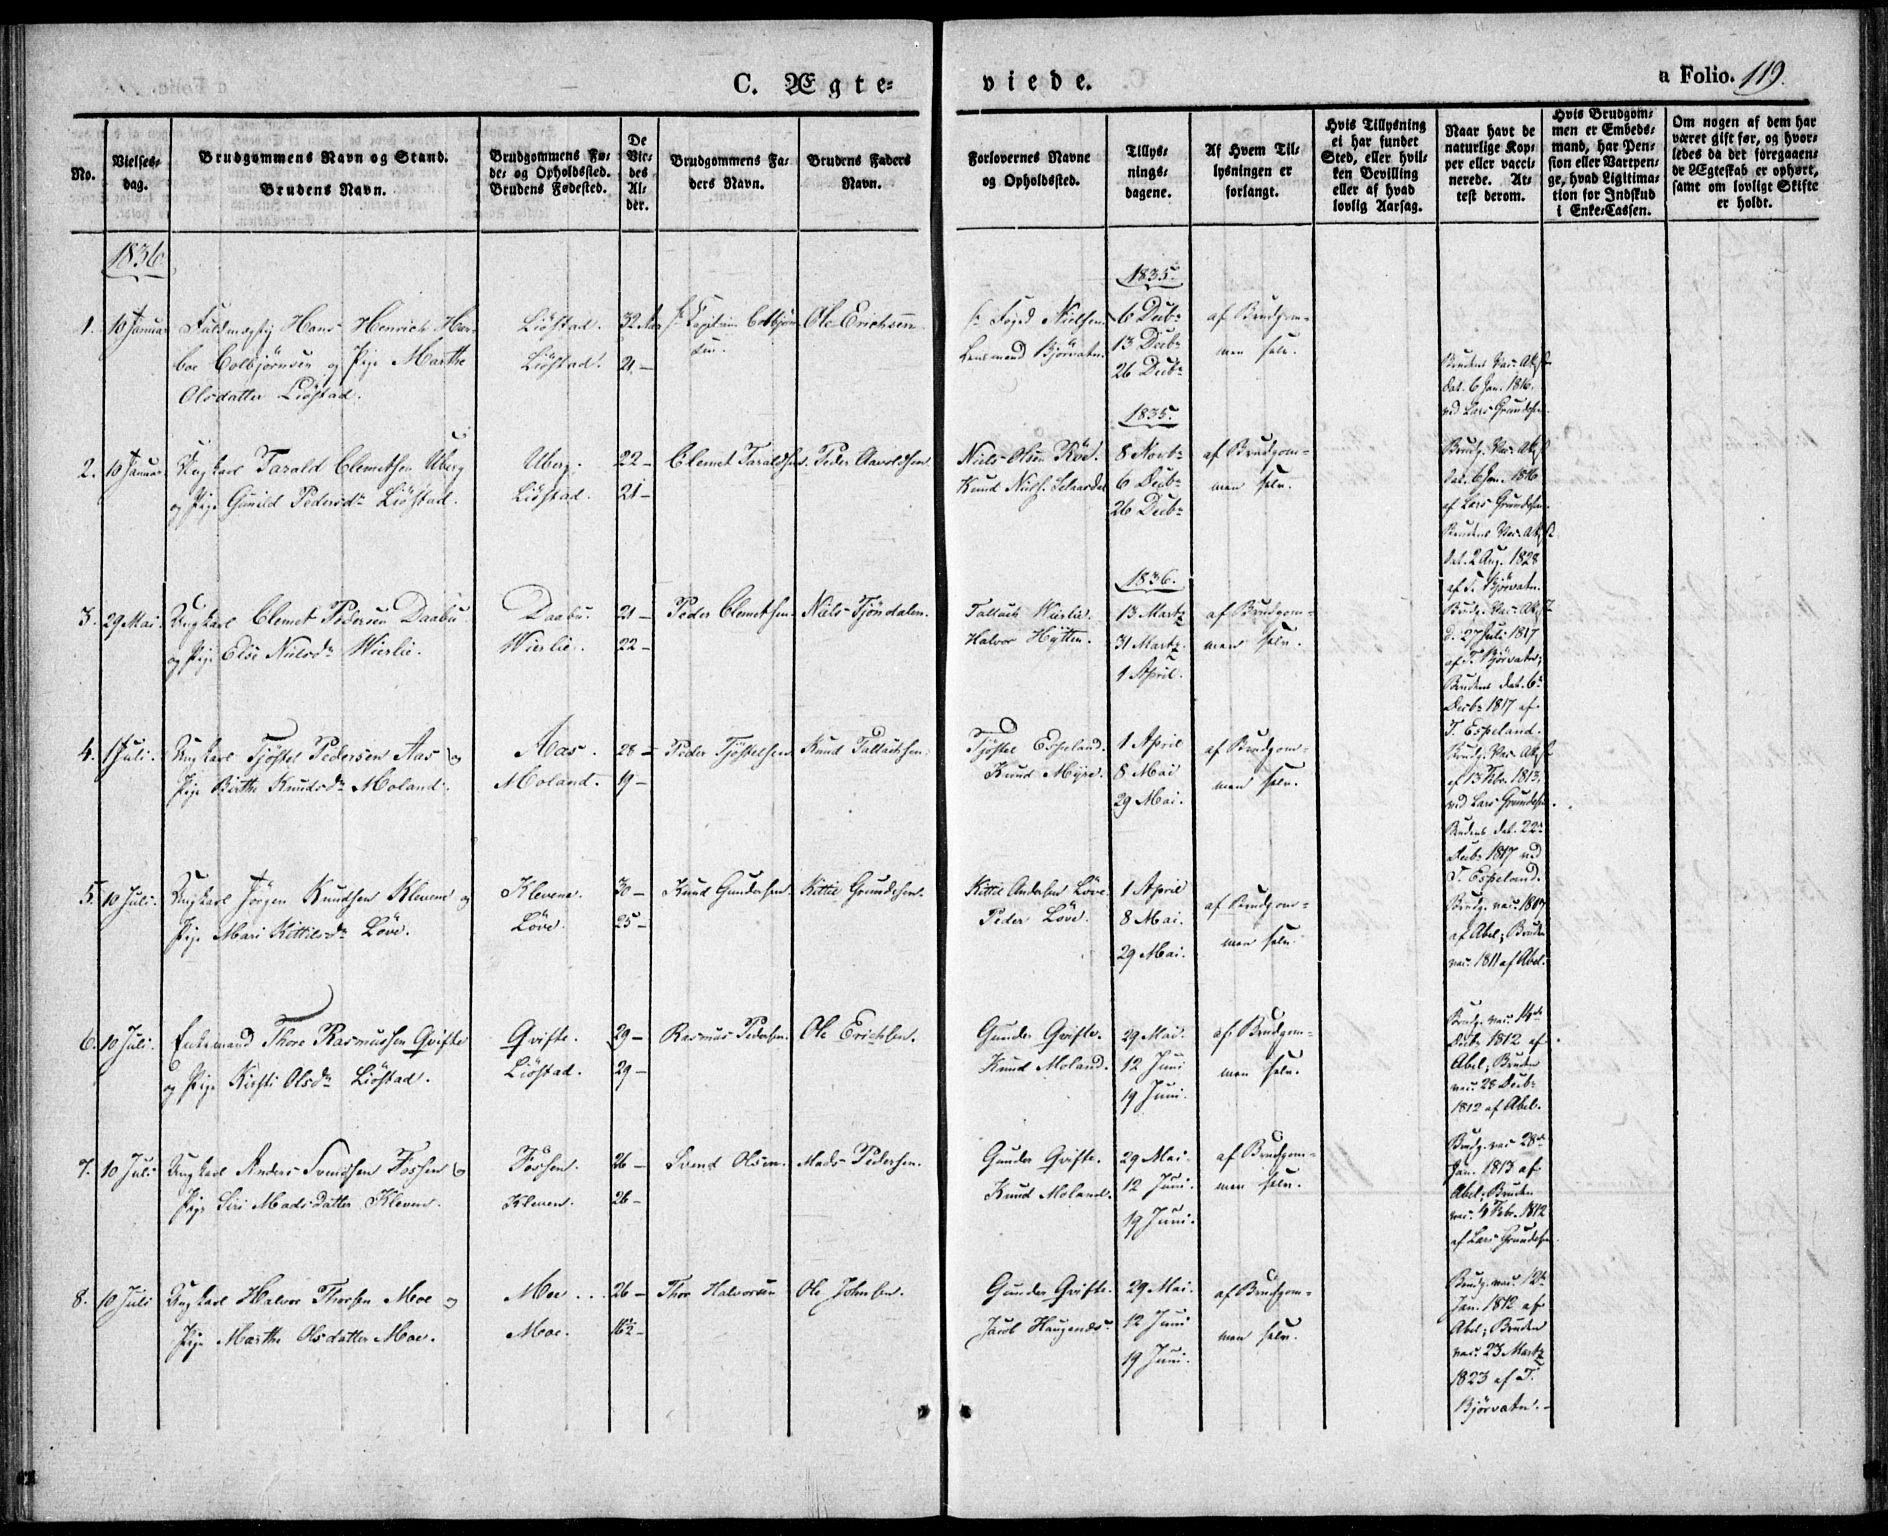 C. Ægte=
viede.
a Folio. 119.
No.
Vielses=
dag.
Brudgommens Navn og Stand.
Brudens Navn.
Brudgommens Fø=
de= og Opholdsted.
Brudens Fødested.
De
Vie=
des
Al=
der.
Brudgommens Fa=
ders Navn.
Brudens Faders
Navn.
Forlovernes Navne
og Opholdsted.
Tillys=
nings=
dagene.
Af Hvem Til=
lysningen er
forlangt.
Hvis Tillysning
ei har fundet
Sted, eller hvil=
ken Bevilling
eller af hvad
lovlig Aarsag.
Naar havt de
naturlige Kop=
per eller vacci=
nerede. At=
test derom.
Hvis Brudgom=
men er Embeds=
mand, har Pen=
sion eller Vartpen=
ge, hvad Ligitima=
tion for Indskud
i Enke=Cassen.
Om nogen af dem har
været gift før, og hvor=
ledes da det foregaaen=
de Ægteskab er ophørt,
samt om lovligt Skifte
er holdt.
1836
1. 10 Januar Fuldmægtig Hans Henrich Her=
boe Colbjørnsen og Pige Marthe
Olsdatter Liøstad.
Liøstad.
Liøstad.
32 Aar
21 —
Capitain Colbjørn
sen.
Ole Erichsen
Foged Nielsen
Lensmand Bjørvatn.
1835.
6 Decbr
13 Decbr
26 Decbr
af Brudgom=
men selv.
Brudens Vac. Att.
dat. 6 Jan. 1816
ved Lars Grundesen
2. 10 Januar Ungkarl Tarald Clemetsen Uberg
og Pige Gunild Pedersdr Liøstad.
Uberg.
Liøstad.
22 —
21 —
Clemet Taraldsen. Peder Aavoldsen
Niels Olsen Røe.
Knud Niels. Selaasdal
1835.
8 Novbr
6 Decbr
26 Decbr
af Brudgom=
men selv.
Brudg. Vac. Att.
dat. 6 Jan. 1816
af Lars Grundesen
Brudens Vac. Att.
dat. 2 Aug. 1828
af T. Bjørvatn.
3. 29 Mai. Ungkarl Clemet Pedersen Daabu
og Pige Else Nielsdr Wierlie.
Daabu.
Wierlie.
21 —
22 —
Peder Clemetsen. Niels Tjøndalen.
Tallack Wierlie.
Halvor Hytten.
1836.
13 Marts
31 Marts.
1 April.
af Brudgom=
men selv.
Brudg. Vac. Att.
d. 27 Juli 1817
af T. Bjørvatn;
Brudens dat. 6
Decbr 1817 af
T. Espeland.
4. 1 Juli. Ungkarl Tjøstel Pedersen Aas og
Pige Birthe Knudsdr Moland.
Aas.
Moland.
28 —
19 —
Peder Tjøstelsen Knud Tallacksen.
Tjøstel Espeland.
Knud Myre.
1 April
8 Mai
29 Mai.
af Brudgom=
men selv.
Brudg. Vac. Att.
af 13 Febr. 1813,
ved Lars Grundesen.
Brudens dat. 22
Decbr 1817 ved
T. Espeland.
5. 10 Juli. Ungkarl Jørgen Knudsen Klevene og
Pige Mari Kittilsdr Løve.
Klevene.
Løve.
30 —
25 —
Knud Gundersen. Kittil Grundesen.
Kittil Andersen Løve.
Peder Løve.
1 April
8 Mai.
29 Mai.
af Brudgom=
men selv.
Brudg. vac. 1807
af Abel; Bruden
vac. 1811 af Abel.
6. 10 Juli. Enkemand Thore Rasmussen Qvifte
og Pige Kirsti Olsdr Liøstad.
Qvifte.
Liøstad.
29 —
29 —
Rasmus Pedersen. Ole Erichsen.
Gunder Qvifte.
Knud Moland.
29 Mai.
12 Juni
19 Juni.
af Brudgom=
men selv.
Brudg. vac. 14de
Decbr. 1812 af
Abel; Bruden
vac. 28 Decbr
1812 af Abel.
7. 10 Juli Ungkarl Anders Svendsen Fossen og
Pige Siri Madsdatter Kleven.
Fossen.
Kleven.
26 —
26 —
Svend Olsen. Mads Pedersen.
Gunder Qvifte.
Knud Moland.
29 Mai.
12 Juni.
19 Juni.
af Brudgom=
men selv.
Brudg. vac. 28de
Jan. 1813 af
Abel; Bruden
vac. 4 Febr. 1812
af Lars Grundesen
8. 10 Juli Ungkarl Halvor Thorsen Moe og
Pige Marthe Olsdatter Moe.
Moe ...
Moe.
26 —
16½ —
Thor Halvorsen Ole Johnsen.
Gunder Qvifte.
Jacob Haugenæs.
29 Mai.
12 Juni
19 Juni.
af Brudgom=
men selv.
Brudg. vac. 12te
Jan. 1812 af
Abel; Bruden
vac. 23 Marts
1823 af T.
Bjørvatn. —